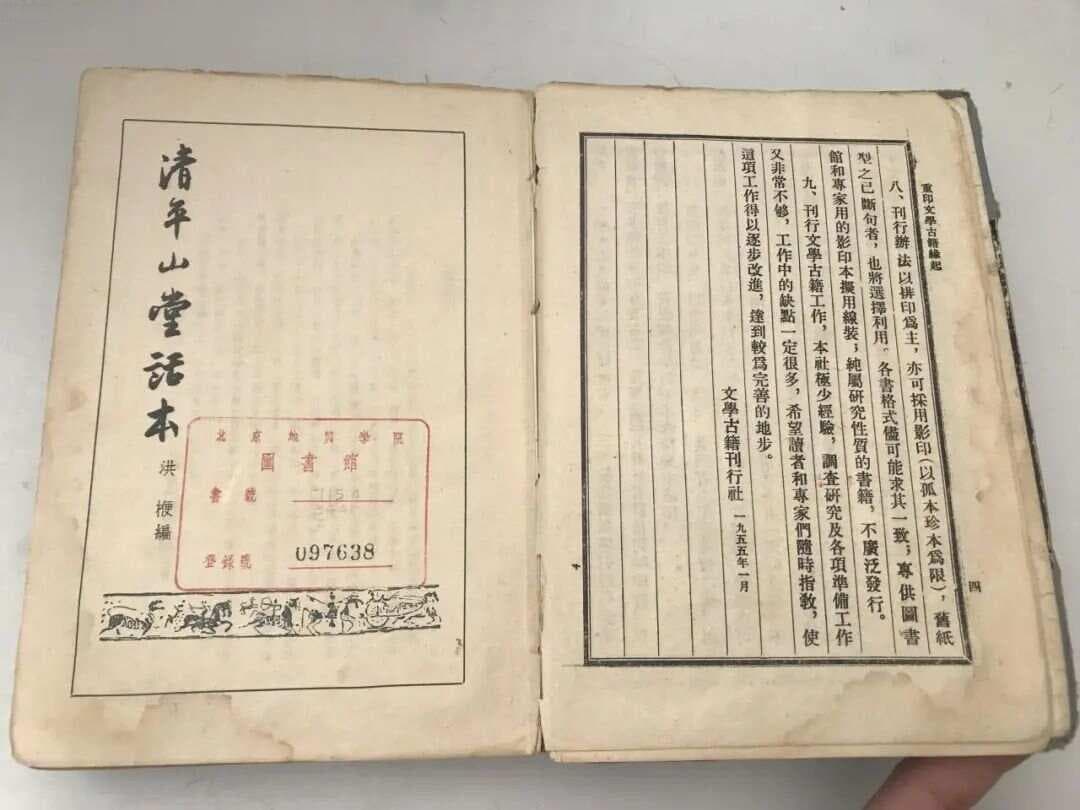 重印文學古籍緣起
四
八、刊行辦法以排印爲主，亦可採用影印(以孤本珍本爲限)，舊紙
型之已斷句者，也將選擇利用。各書格式儘可能求其一致；專供圖書
館和專家用的影印本擬用線裝；純屬研究性質的書籍，不廣泛發行。
九、刊行文學古籍工作，本社極少經驗，調查研究及各項準備工作
又非常不够，工作中的缺點一定很多，希望讀者和專家們隨時指教，使
這項工作得以逐步改進，達到較爲完善的地步。
文學古籍刊行社 一九五五年一月
清平山堂話本
洪楩編
北京地質學院
圖書館
書號
登錄號 097638